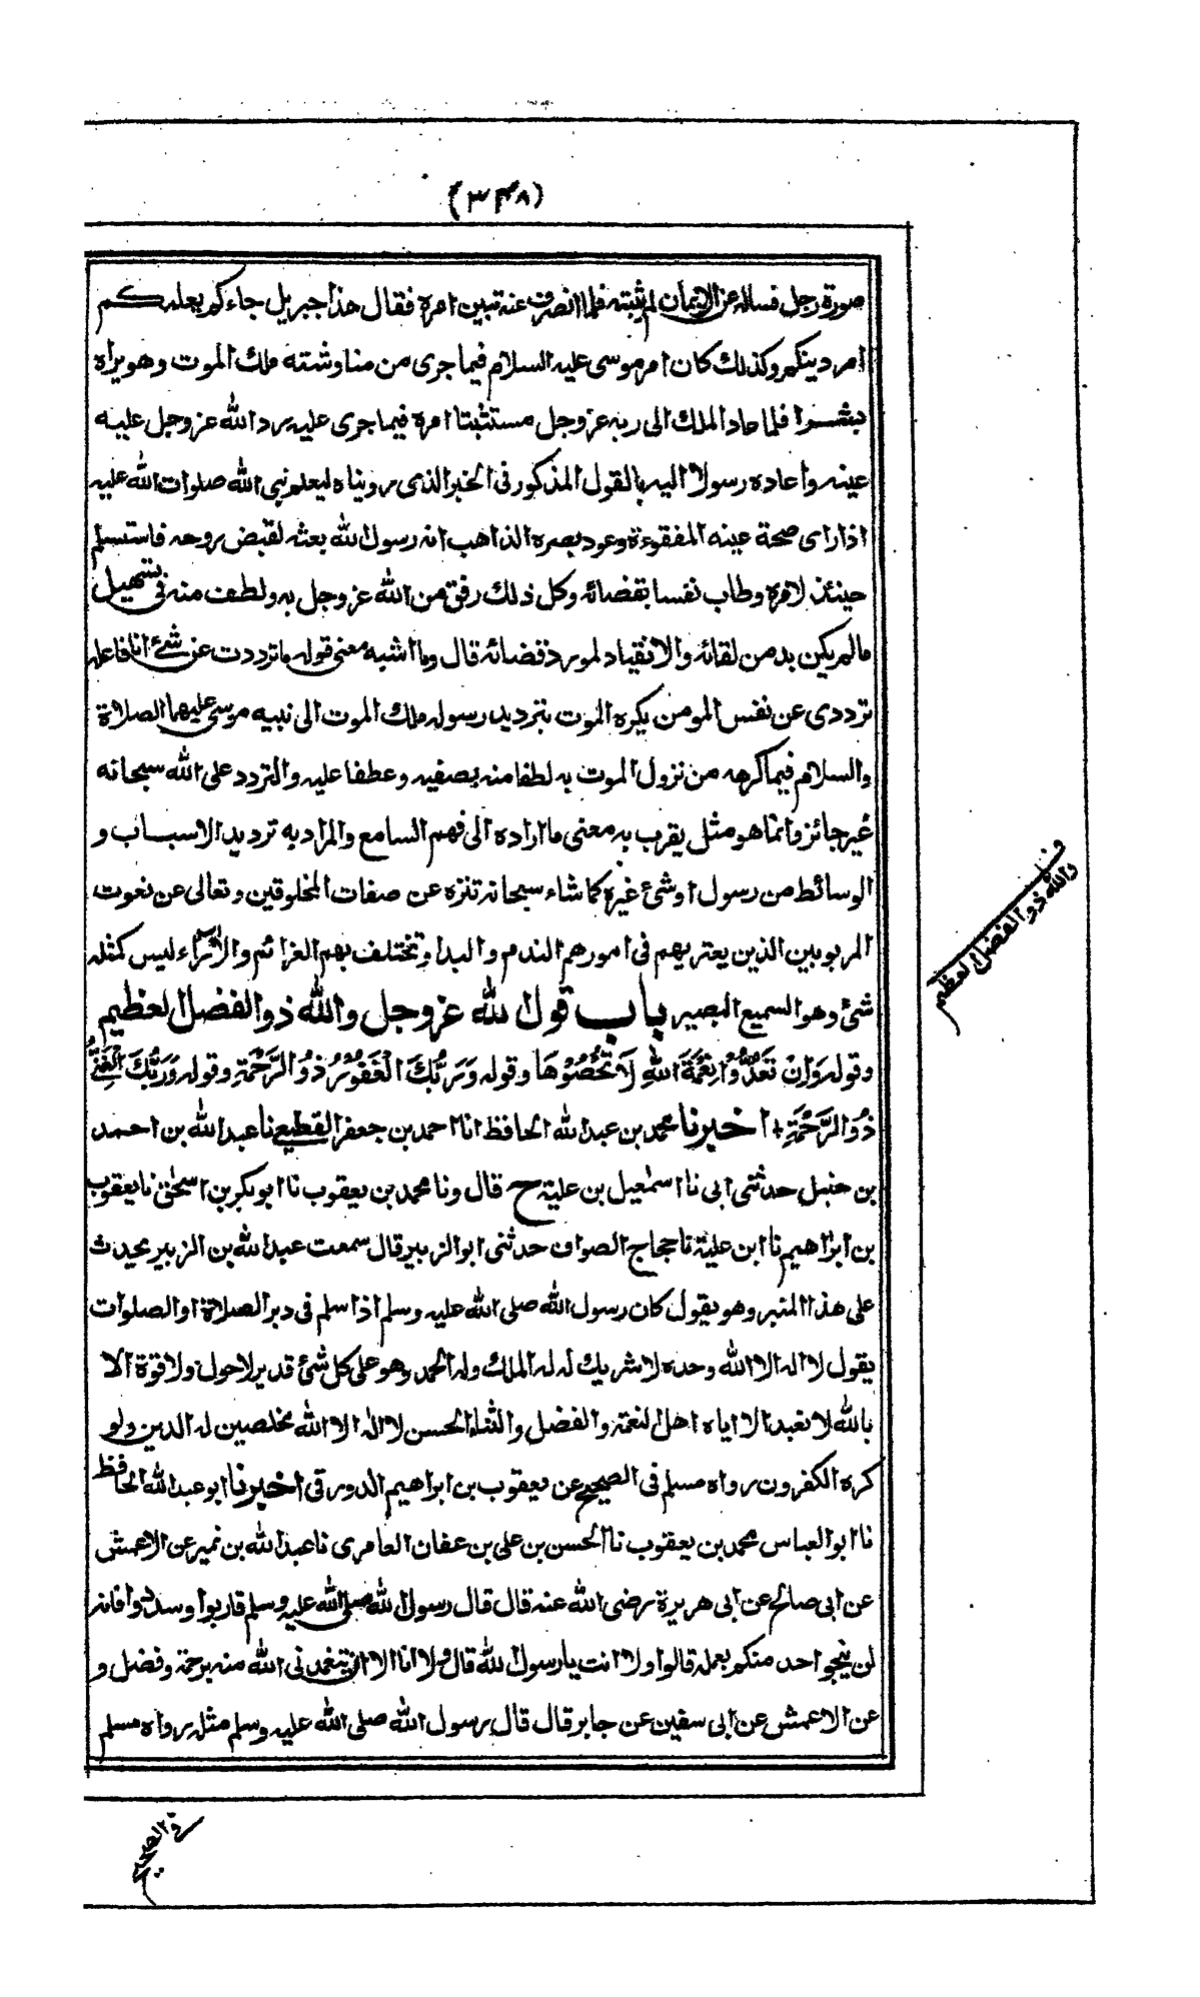 (٣٤٨)
صورة رجل فساله عن الايمان لم يثبته فلما انصرف عنه تبين امره فقال هذا جبريل جاءكم يعلمكم
امر دينكم وكذلك كان امر موسى عليه السلام فيما جرى من مناوشته ملك الموت وهو يراه
بشرا فلما عاد الملك الى ربه عز وجل مستثبتا امره فيما جرى عليه رد الله عز وجل عليه
عينه واعاده رسولا اليه بالقول المذكور فى الخبر الذى رويناه ليعلم نبى الله صلوات الله عليه
اذا راى صحة عينه المفقوءة وعود بصره الذاهب انه رسول الله بعثه لقبض روحه فاستسلم
حينئذ لامره وطاب نفسا بقضائه وكل ذلك رفق من الله عز وجل به ولطف منه فى تسهيل
مالم يكن بد من لقائه والانقياد لمورد قضائه قال وما اشبه معنى قوله ما ترددت عن شئ انا فاعله
ترددى عن نفس المومن يكره الموت بترديد رسوله ملك الموت الى نبيه موسى عليهما الصلاة
والسلام فيما كرهه من نزول الموت به لطفا منه بصفيه وعطفا عليه والتردد على الله سبحانه
غير جائز وانما هو مثل يقرب به معنى ما اراده الى فهم السامع والمراد به ترديد الاسباب و
الوسائط من رسول او شئ غيره كما شاء سبحانه تنزه عن صفات المخلوقين وتعالى عن نعوت
المربوبين الذين يعتريهم فى امورهم الندم والبدا وتختلف بهم العزائم والاراء ليس كمثله
شئ وهو السميع البصير باب قول لله عز وجل والله ذو الفضل العظيم
وقوله وَاِنْ تَعُدُّوْا نِعْمَةَ اللّٰهِ لَا تُحْصُوْهَا وقوله وَرَبُّكَ الْغَفُوْرُ ذُو الرَّحْمَةِ وقوله وَرَبُّكَ الْغَنِىُّ
ذُو الرَّحْمَةِ + اخبرنا محمد بن عبد الله الحافظ انا احمد بن جعفر القطيعى نا عبد الله بن احمد
بن حنبل حدثنى ابى نا اسمعيل بن علية ح قال ونا محمد بن يعقوب نا ابو بكر بن اسحٰق نا يعقوب
بن ابراهيم نا ابن علية نا حجاج الصواف حدثنى ابو الزبير قال سمعت عبد الله بن الزبير يحدث
على هذا المنبر وهو يقول كان رسول الله صلى الله عليه وسلم اذا سلم فى دبر الصلاة او الصلوات
يقول لا اله الا الله وحده لا شريك له له الملك وله الحمد وهو على كل شئ قدير لا حول ولا قوة الا
بالله لا نعبد الا اياه اهل النعمة والفضل والثناء الحسن لا اله الا الله مخلصين له الدين ولو
كره الكفرون رواه مسلم فى الصحيح عن يعقوب بن ابراهيم الدورقى اخبرنا ابو عبد الله الحافظ
نا ابو العباس محمد بن يعقوب نا الحسن بن على بن عفان العامرى نا عبد الله بن نمير عن الاعمش
عن ابى صالح عن ابى هريرة رضى الله عنه قال قال رسول الله صلى الله عليه وسلم قاربوا وسددوا فانه
لن ينجو احد منكم بعمله قالوا ولا انت يا رسول لله قال ولا انا الا ان يتغمدنى الله منه برحمة وفضل و
عن الاعمش عن ابى سفين عن جابر قال قال رسول الله صلى الله عليه وسلم مثله رواه مسلم
والله ذو الفضل العظيم
فى الصحيح